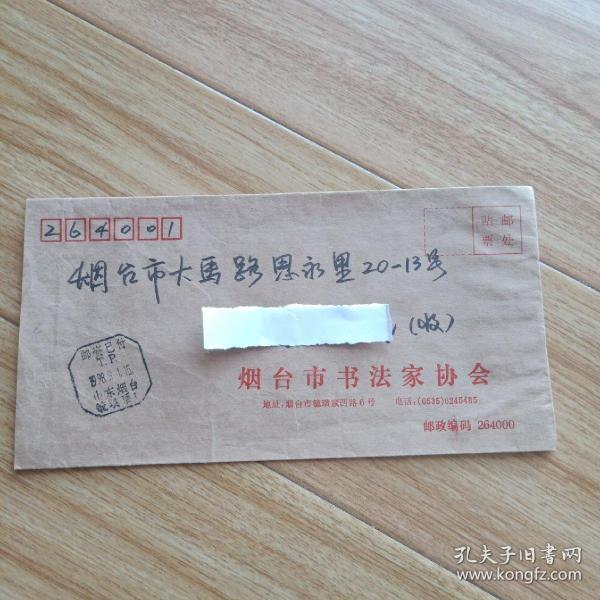 264001
贴邮
票处
烟台市大马路恩永里20-13号
(收)
邮资已付
T.P.
山东烟台
烟台市书法家协会
地址:烟台市毓璜顶西路6号 电话:(0535)6245485
邮政编码 264000
孔夫子旧书网
www.kongfz.com